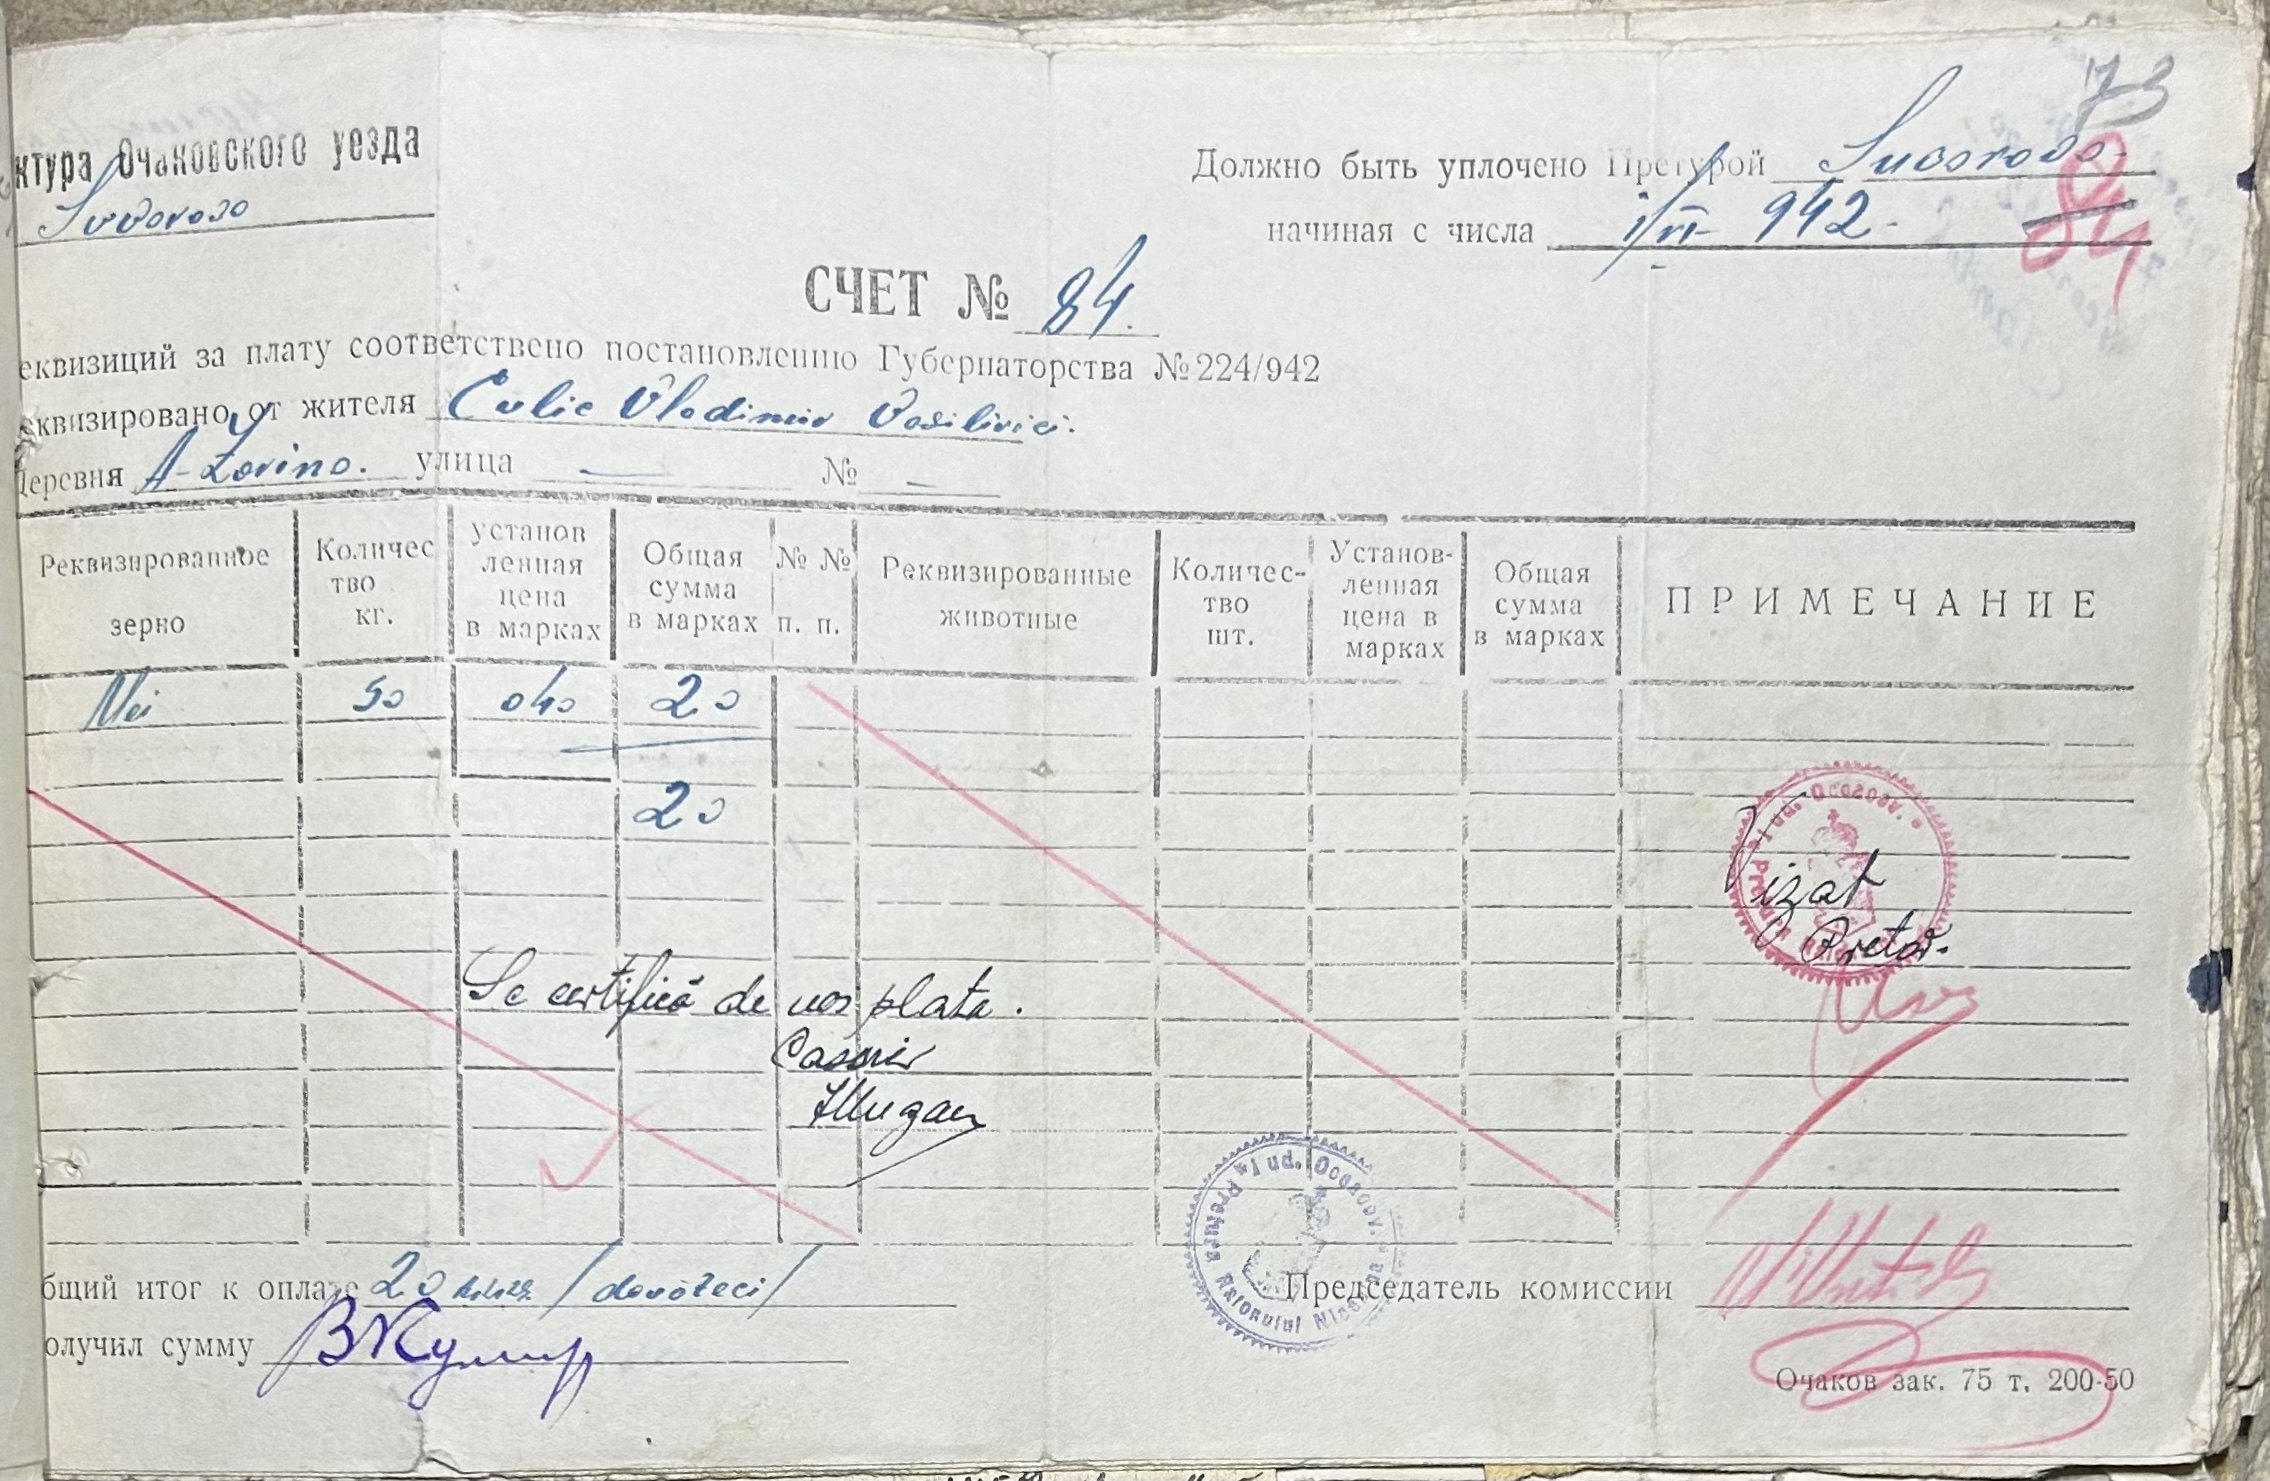 73
ктура Очаковского уезда
Suvorovo
Должно быть уплочено Претурой Suvorovo
начиная с числа 1/VI 942.
84
СЧЕТ № 84.
еквизиций за плату соответствено постановлению Губернаторства № 224/942
еквизировано от жителя Culic Vladimir Vasilivici.
Деревня A-Zorino. улица — № —
Реквизированное зерно
Количес тво кг.
установ ленная цена в марках
Общая сумма в марках
№ № п. п.
Реквизированные животные
Количес- тво шт.
Установ- ленная цена в марках
Общая сумма в марках
ПРИМЕЧАНИЕ
Mei 50 040 20
20
Vizat
Pretor.
Se certifică de noi plata.
Casier
Jud. Oceacov. Pretura Raionului
бщий итог к оплате 20 /douăzeci/
Председатель комиссии
олучил сумму
Очаков зак. 75 т. 200-50